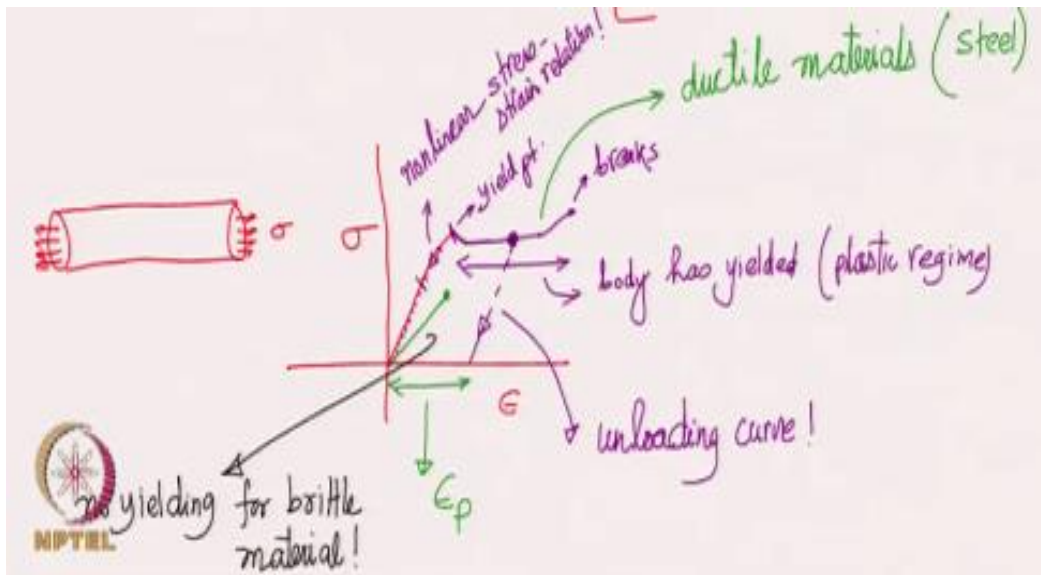 nonlinear stress-
strain relation!
ductile materials (steel)
yield pt.
breaks
σ
σ
body has yielded (plastic regime)
ϵ
unloading curve!
ϵp
no yielding for brittle
material!
NPTEL